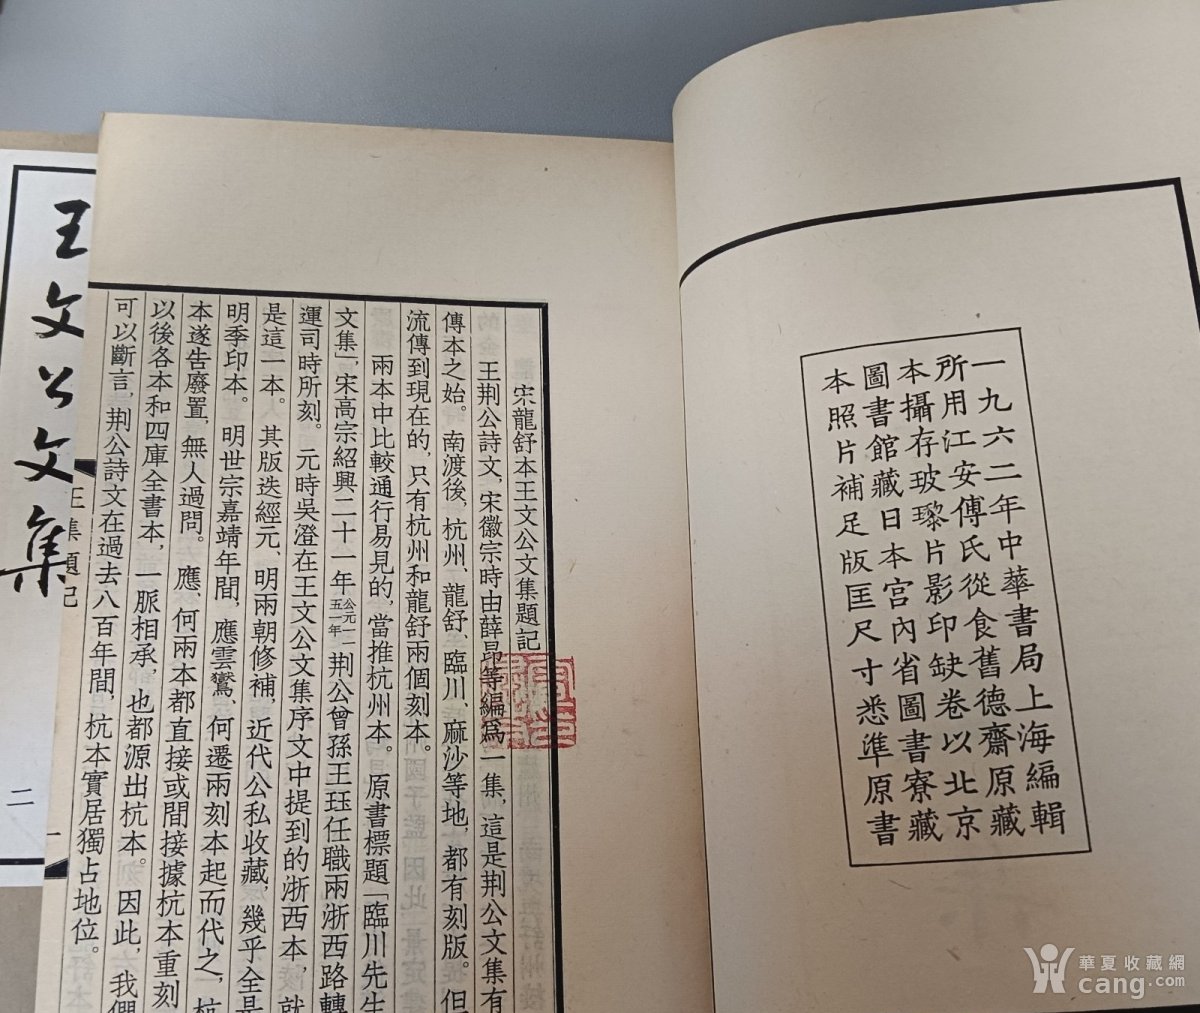 一九六二年中華書局上海編輯
所用江安傅氏從食舊德齋原藏
本攝存玻璨片影印缺卷以北京
圖書館藏日本宮內省圖書寮藏
本照片補足版匡尺寸悉準原書
宋龍舒本王文公文集題記
王荆公詩文，宋徽宗時由薛昂等編爲一集，這是荆公文集有
傳本之始。南渡後，杭州、龍舒、臨川、麻沙等地，都有刻版。但
流傳到現在的，只有杭州和龍舒兩個刻本。
兩本中比較通行易見的，當推杭州本。原書標題「臨川先生
文集」，宋高宗紹興二十一年公元一一五一年荆公曾孫王珏任職兩浙西路轉
運司時所刻。元時吳澄在王文公文集序文中提到的浙西本，就
是這一本。其版迭經元、明兩朝修補，近代公私收藏，幾乎全是
明季印本。明世宗嘉靖年間，應雲鸑、何遷兩刻本起而代之，杭
本遂告廢置，無人過問。應、何兩本都直接或間接據杭本重刻
以後各本和四庫全書本，一脈相承，也都源出杭本。因此，我們
可以斷言，荆公詩文在過去八百年間，杭本實居獨占地位。
王集題記
一
王文公文集
二
華夏收藏網
cang.com